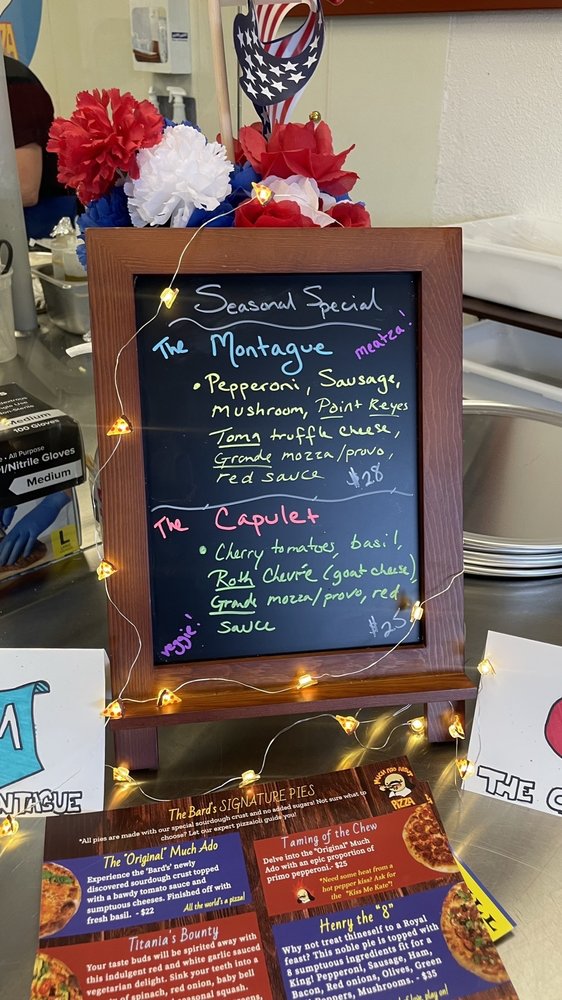 Seasonal Special
The Montague
meatza!
• Pepperoni, Sausage,
Mushroom, Point Reyes
Toma truffle cheese,
Grande mozza/provo,
red sauce $28
The Capulet
• Cherry tomatoes, basil,
Roth Chevré (goat cheese)
Grande mozza/provo, red
sauce
veggie!
$25
Medium
100 Gloves
All Purpose
Nitrile Gloves
Medium
L
M
NTAGUE
THE C
The Bard's SIGNATURE PIES
*All pies are made with our special sourdough crust and no added sugars! Not sure what to
choose? Let our expert pizzaioli guide you!
MUCH ADO ABOUT
PIZZA
The "Original" Much Ado
Experience the 'Bard's' newly
discovered sourdough crust topped
with a bawdy tomato sauce and
sumptuous cheeses. Finished off with
fresh basil. - $22
All the world's a pizza!
Taming of the Chew
Delve into the "Original" Much
Ado with an epic proportion of
primo pepperoni.- $25
*Need some heat from a
hot pepper kiss? Ask for
the "Kiss Me Kate"!
Titania's Bounty
Your taste buds will be spirited away with
this indulgent red and white garlic sauced
vegetarian delight. Sink your teeth into a
of spinach, red onion, baby bell
seasonal squash.
Henry the "8"
Why not treat thineself to a Royal
feast? This noble pie is topped with
8 sumptuous ingredients fit for a
King! Pepperoni, Sausage, Ham,
Bacon, Red onions, Olives, Green
Peppers, Mushrooms. - $35